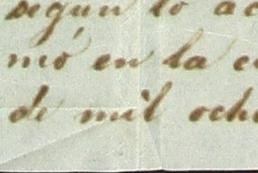 según lo ac
mó en la c
de mil oche